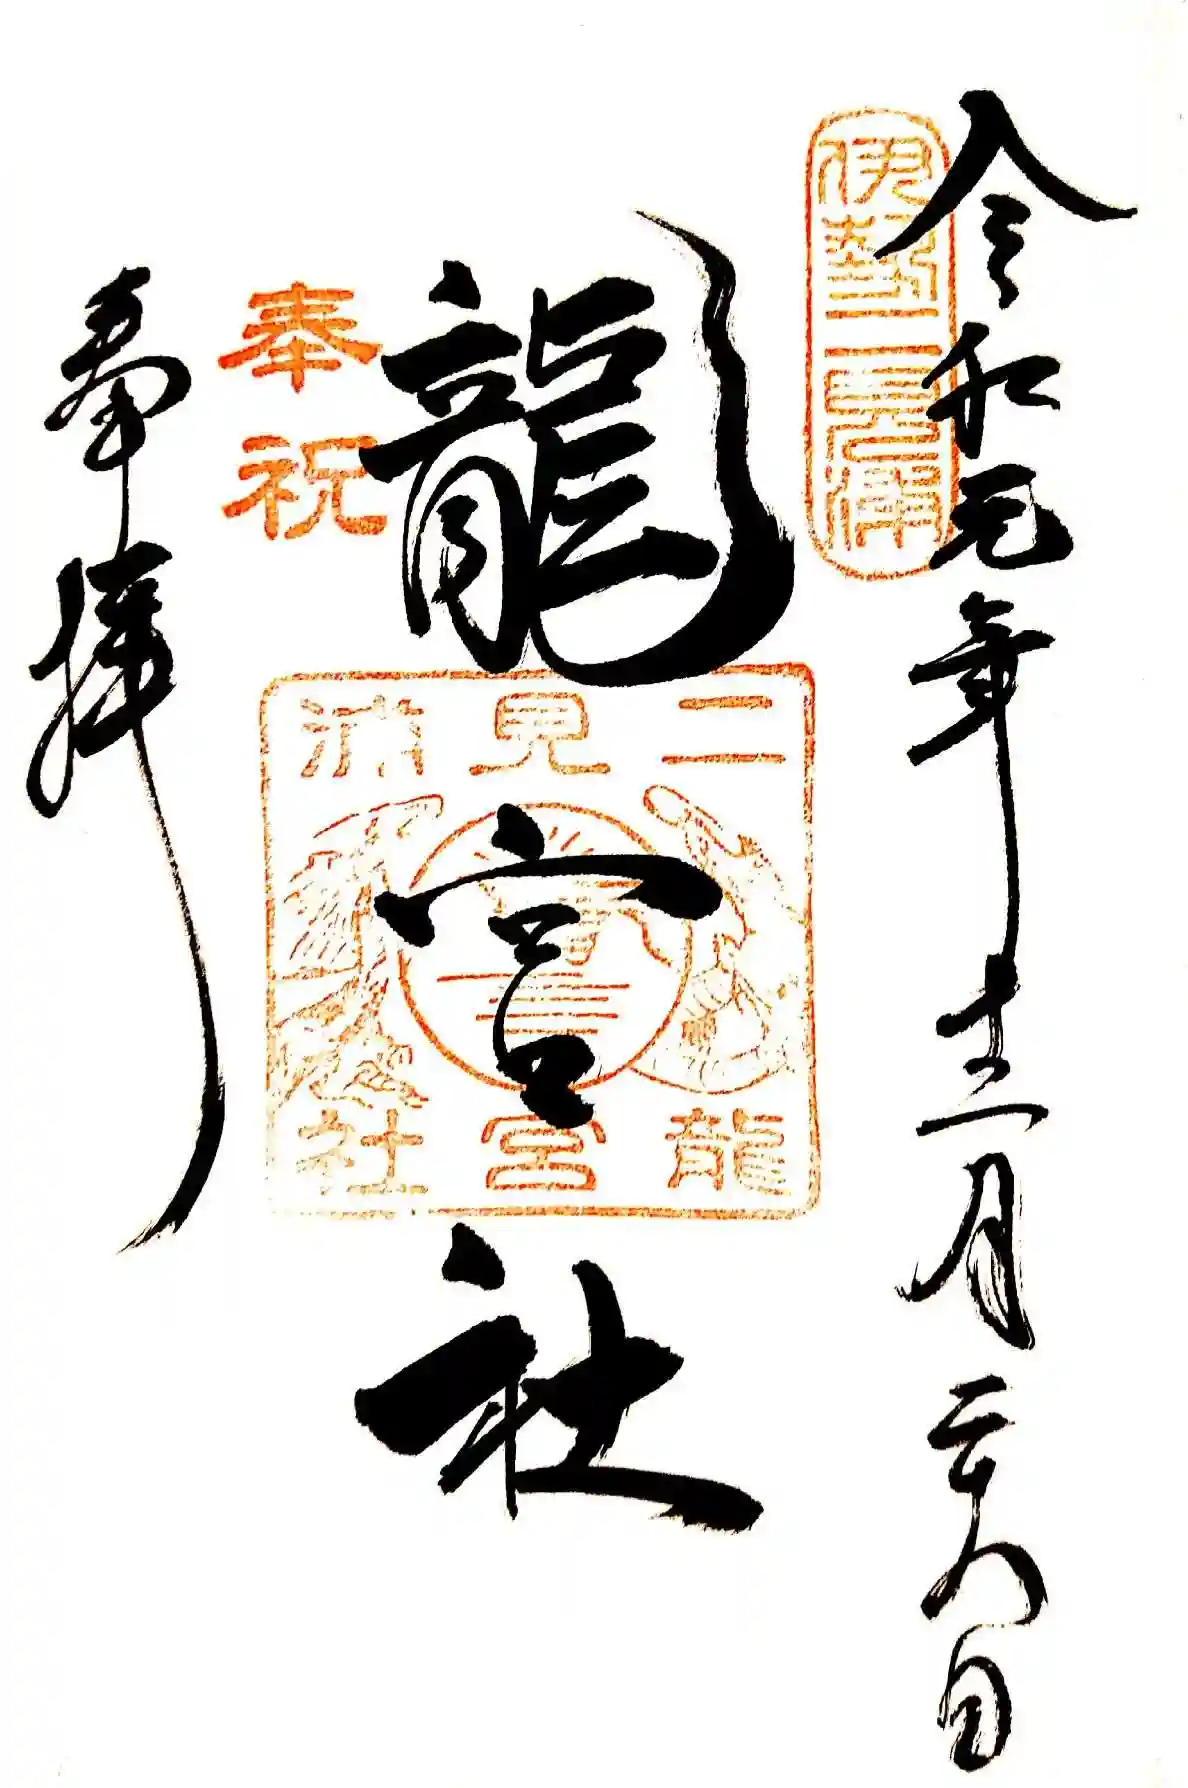 伊勢二見浦
令和元年十二月二十八日
龍宮社
二見浦
龍宮社
奉祝
奉拝